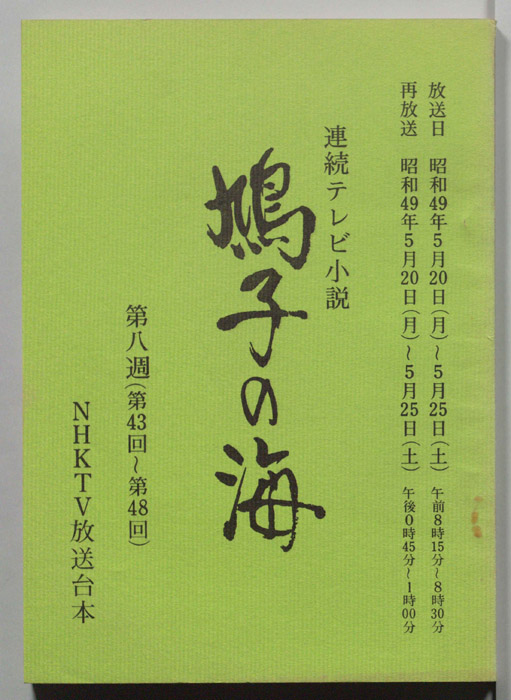 放送日　昭和49年5月20日(月)～5月25日(土)　午前8時15分～8時30分
再放送　昭和49年5月20日(月)～5月25日(土)　午後0時45分～1時00分
連続テレビ小説
鳩子の海
第八週(第43回～第48回)
NHKTV放送台本